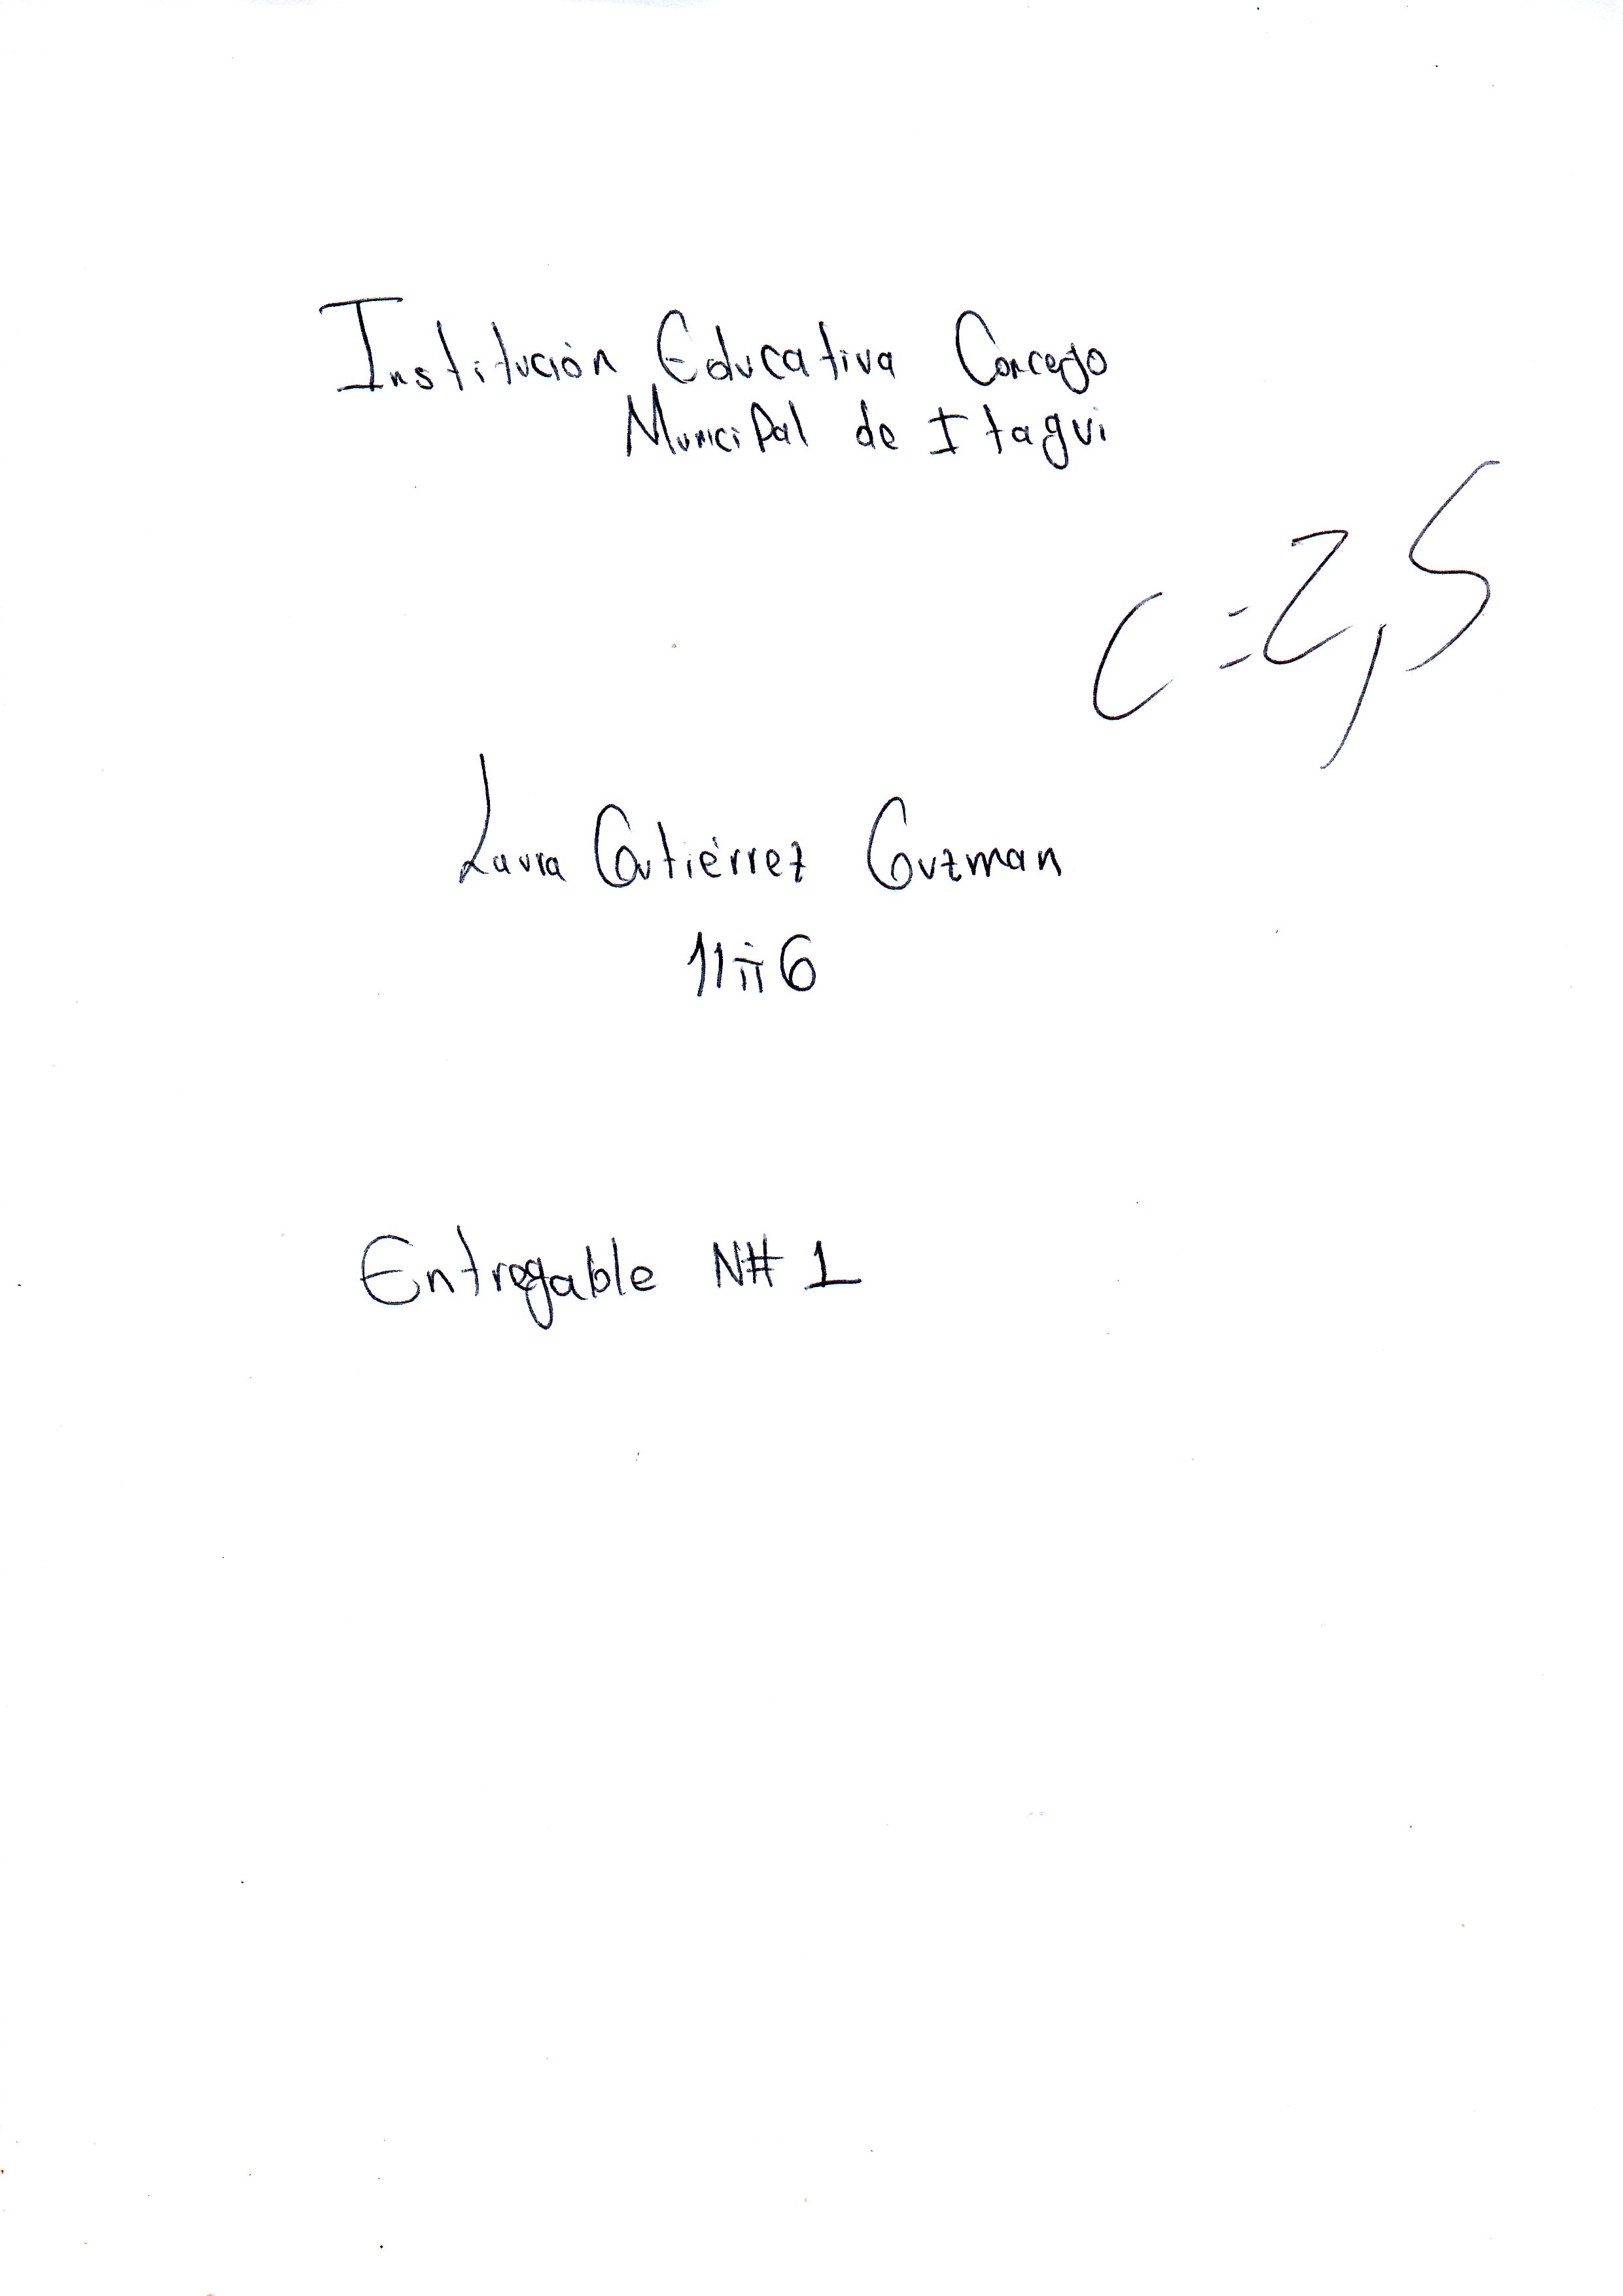 Institución Educativa Concejo
Municipal de Itagui
C=2,5
Laura Gutiérrez Guzman
11π6
Entregable N# 1